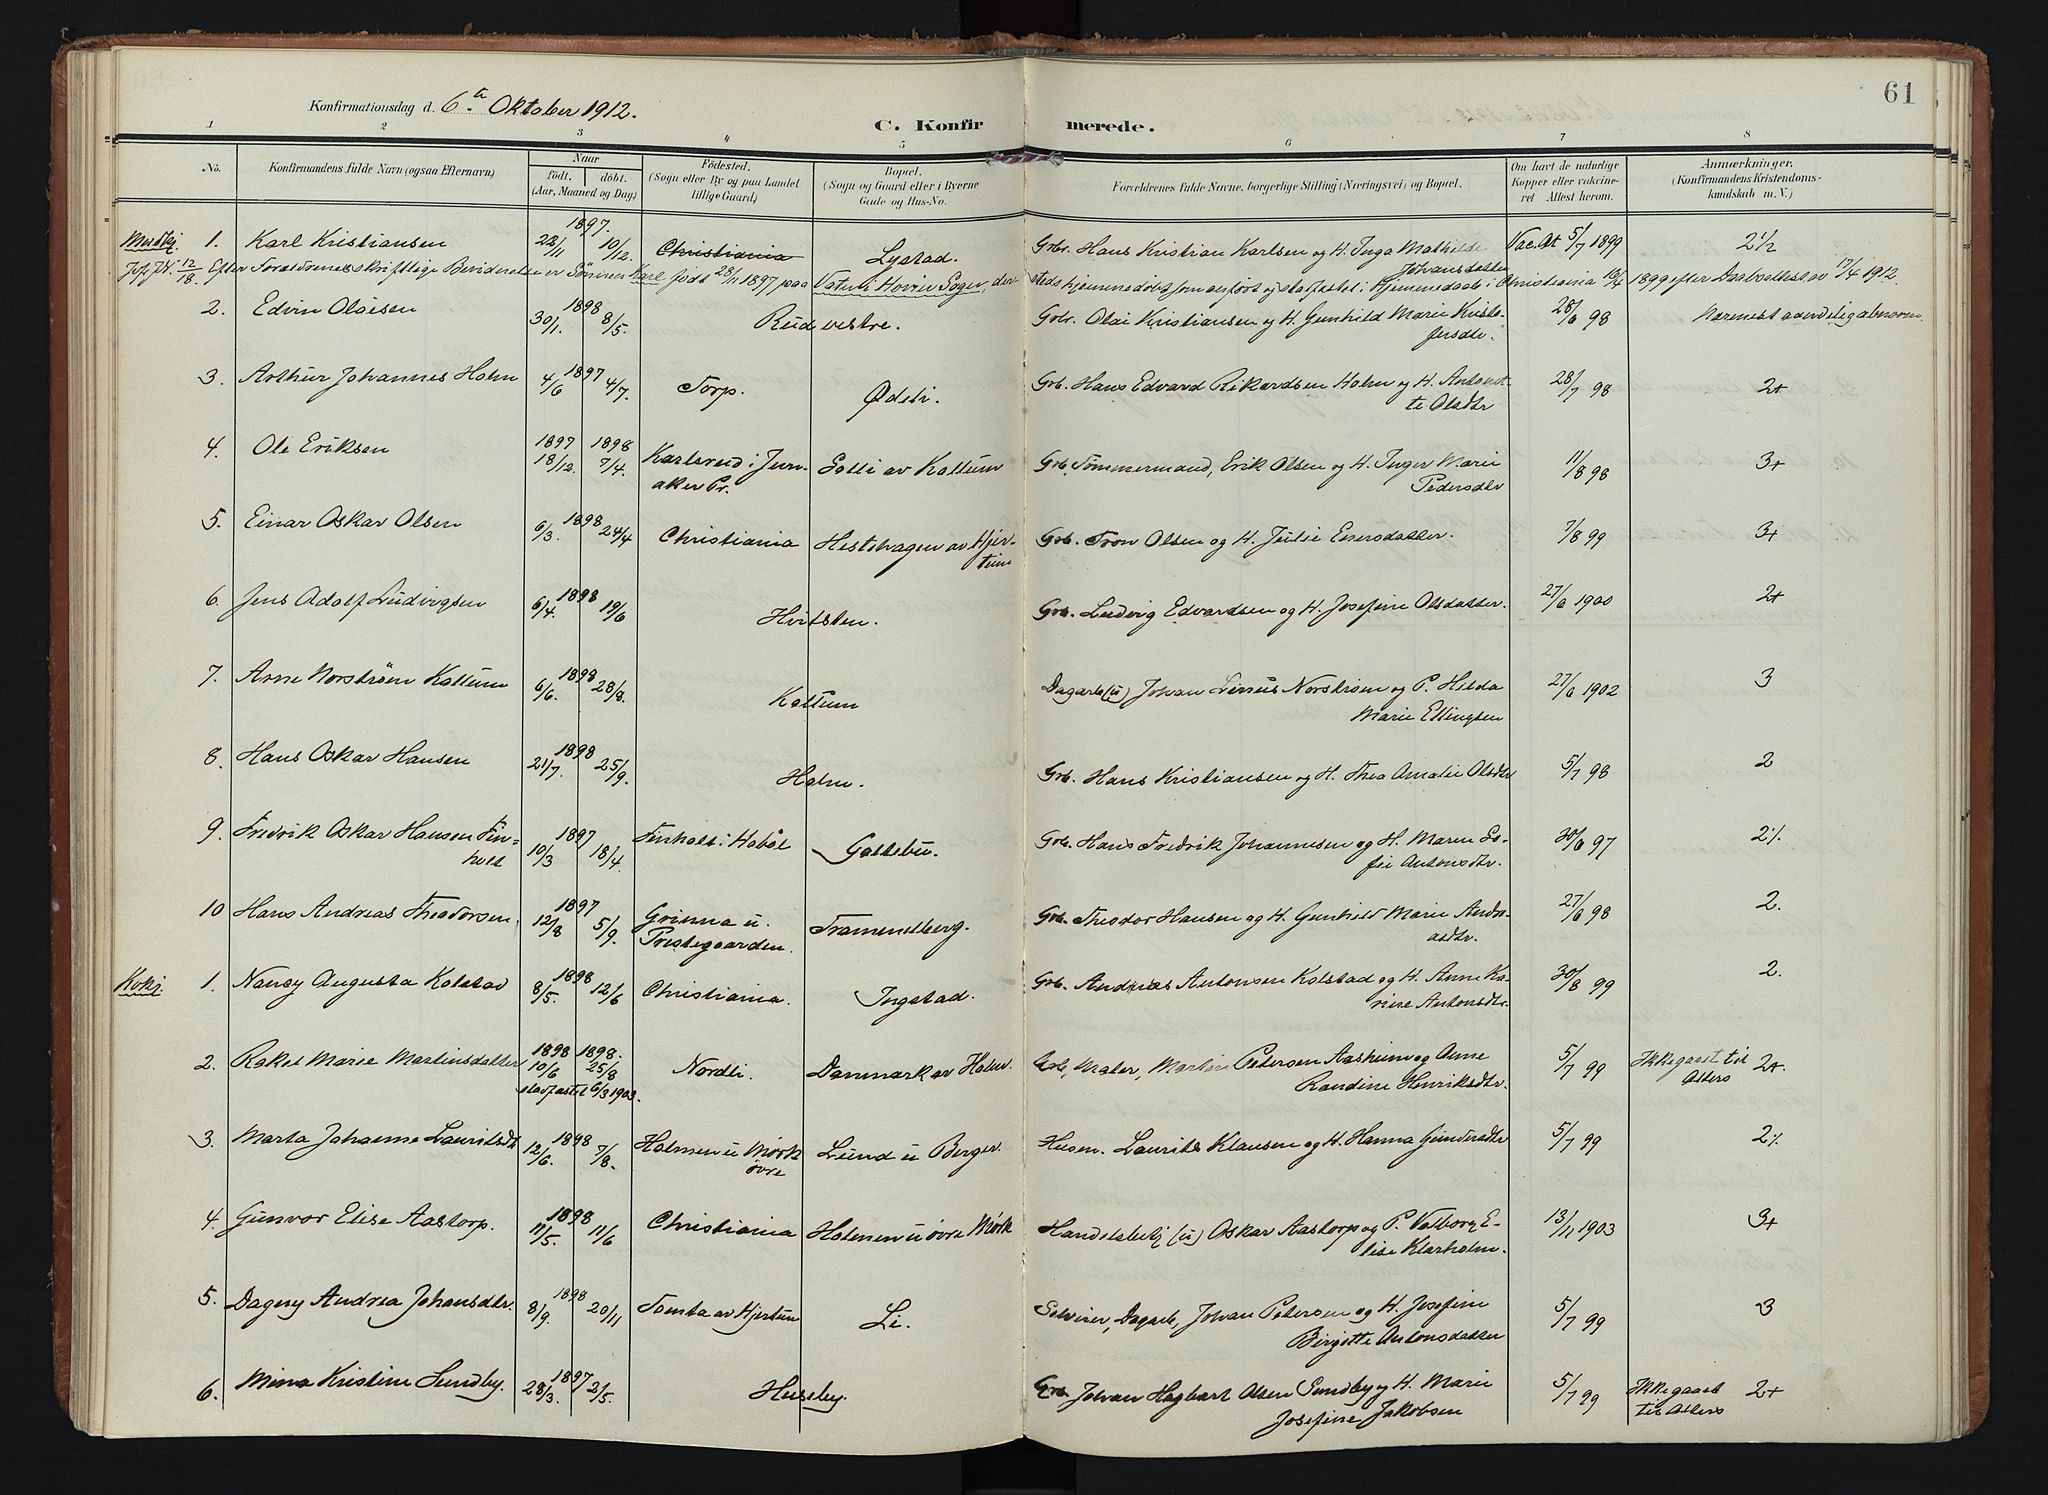 61
Konfirmationsdag d. 6te Oktober 1912.
C. Konfirmerede.
1 2 3 4 5 6 7 8
No. Konfirmandens fulde Navn (ogsaa Efternavn) Naar født. døbt. (Aar, Maaned og Dag) Fødested. (Sogn eller By og paa Landet tillige Gaard) Bopæl. (Sogn og Gaard eller i Byerne Gade og Hus-No. Forældrenes fulde Navne, borgerlige Stilling (Næringsvei) og Bopæl. Om havt de naturlige Kopper eller vakcineret Attest herom. Anmærkninger. (Konfirmandens Kristendomskundskab m. V.)
1897.
1. Karl Kristiansen 28/11 10/12. Christiania Lystad. Grbr. Hans Kristian Karlsen og H. Inga Mathilde Johansdatter Vac.At 5/7 1899 2 1/2
12/18. Efter Forældrenes skriftlige er Sønnen Karl født 28/11 1897 paa i Hovin Sogn, der steds hjemmedøbt som anført og stadfæstet i Hjemmedaab i Christiania 1899 efter Daabsattest av 17/4 1912.
2. Edvin Olaisen 1898 30/1. 8/5. Rud vestre. Grbr. Olai Kristiansen og H. Gunhild Marie Kristofersdtr. 28/6 98
3. Arthur Johannes Holm 1897 4/6 4/7. Torp. Ødeli. Grb. Hans Edvard Rikardsen Holm og H. Antonette Olsdtr 28/7 98 2+
4. Ole Eriksen 1897 18/12. 1898 7/4. Karlsrud i Jevnaker Pr. Solli av Kattum Grb. Tømmermand, Erik Olsen og H. Inger Marie Pedersdtr 11/8 98 3+
5. Einar Oskar Olsen 1898 6/3. 24/4 Christiania Hestehagen av Hjertum Grb. Tron Olsen og H. Julie Enersdatter. 7/8 99 3+
6. Jens Adolf Ludvigsen 1898 6/4. 19/6 Hvitsten. Grb. Ludvig Edvardsen og H. Josefine Olsdatter. 27/6 1900 2+
7. Arne Norstrøm Kattum 1898 6/6. 28/8. Kattum Dagarb (u) Johan Linus Norstrøm og P. Hilda Marie Ellingsen 27/6 1902 3
8. Hans Oskar Hansen 1898 21/7. 25/9. Holm. Grb. Hans Kristiansen og H. Thea Amalie Olsdtr 5/7 98 2
9. Fredrik Oskar Hansen Finholt 1897 10/3 18/4. Finholt i Hobøl Gottebu. Grb. Hans Fredrik Johannesen og H. Maren Sofie Antonsdtr. 30/6 97 2%
10 Hans Andreas Theodorsen. 1897 12/8 5/9. Grinna u. Prestegaarden. Framendberg. Grb. Theodor Hansen og H. Gunhild Marie Andreasdtr. 27/6 98 2.
1. Nancy Augusta Kolstad 1898 8/5. 12/6 Christiania. Ingstad. Grb. Andreas Antonsen Kolstad og H. Anne Karine Antonsdtr. 30/8 99 2.
2. Rakel Marie Martinsdatter 1898 10/6 1898. 25/8 stadfæstet 6/3 1903. Nordli. Danmark av Holm. Grb, Maler, Martin Petersen Aasheim og Anne Randine Henriksdtr. 5/7 99 Ikke gaaet til Alters 2+.
3. Marta Johanne Lauritsdt 1898 12/6. 7/8. Holmen u Mørk øvre Lund u Berger. Husm. Laurits Klausen og H. Hanna Gundersdtr 5/7 99 2%
4. Gunvor Elise Aastorp. 1898 11/5. 11/6 Christiania Holmen u øvre Mørk Handelsbetj (u) Oskar Aastorp og P. Valborg Elise Klarholm. 13/11 1903 3+
5. Dagny Andrea Johansdtr. 1898 8/9. 20/11 Tomta av Hjertum Li. Selveier, Dagarb, Johan Petersen og H. Josefine Birgitte Antonsdatter 5/7 99 3
6. Mina Kristine Sundby. 1897 28/3. 2/5. Huseby. Grb. Johan Hagbart Olsen Sundby og H. Marie Josefine Jakobsen 5/7 99 Ikke gaaet til Alters 2+